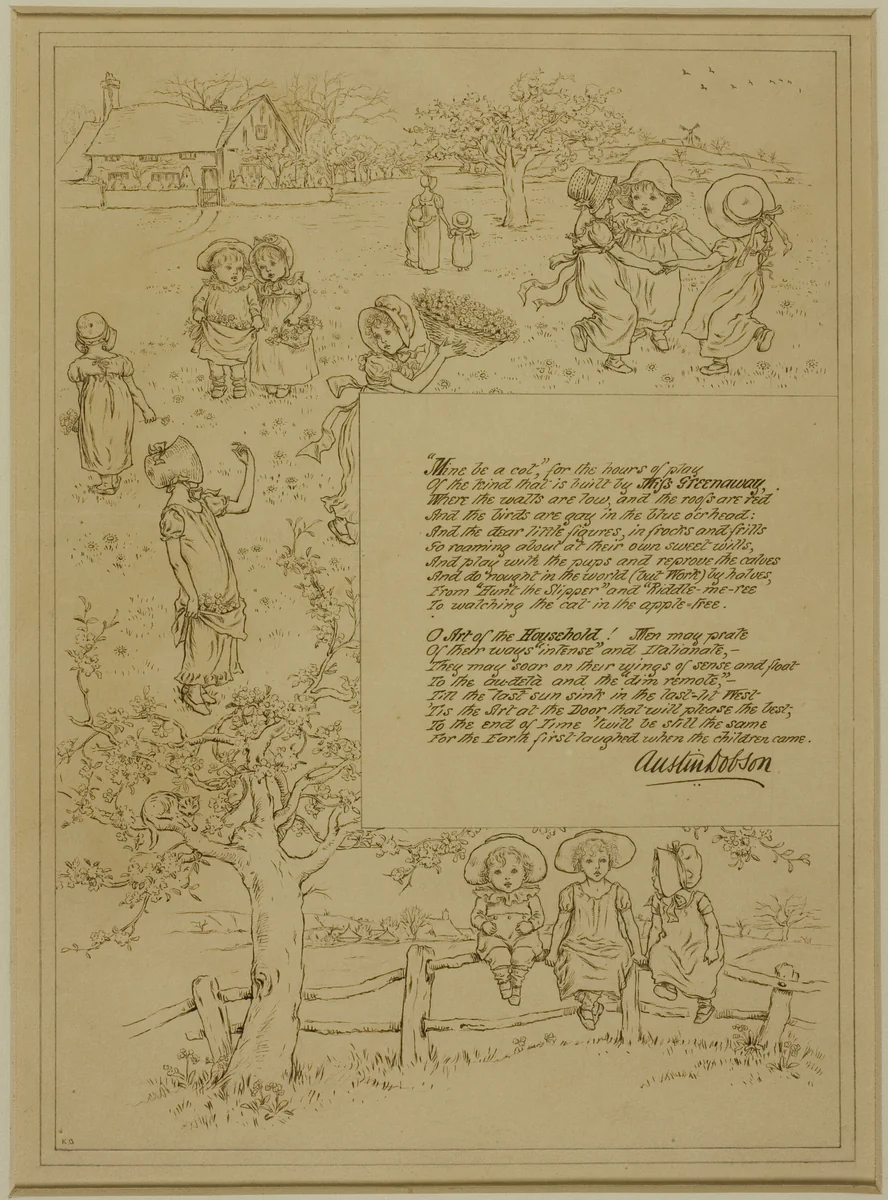 "Mine be a cot," for the hours of play
Of the kind that is built by Miss Greenaway,
Where the walls are low, and the roofs are red
And the birds are gay in the blue o'erhead;
And the dear little figures, in frocks and frills
Go roaming about at their own sweet wills,
And play with the pups and reprove the calves
And do nought in the world (but Work) by halves,
From "Hunt the Slipper" and "Riddle-me-ree
To watching the cat in the apple-tree.
O Art of the Household! Men may prate
Of their ways "intense" and Italianate,—
They may soar on their wings of sense and float
To the au-delà and the "dim remote,"—
Till the last sun sink in the last-lit West
'Tis the Art at the Door that will please the best;
To the end of Time 'twill be still the same
For the Earth first laughed when the children came.
Austin Dobson
K.G.